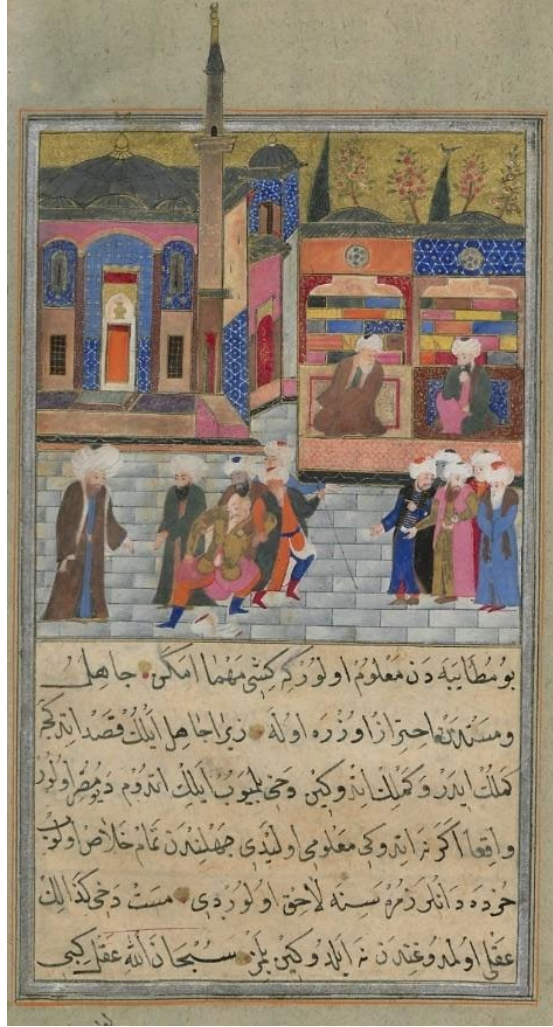 بو مطایبه دن معلوم اولور که کشی مهما امکن جاهل
و مستدن احتراز اوزره اوله زیرا جاهل ایلك قصد اتدکجه
کملك ایدر و کملك اتدوکین دخی بلمیوب ایلك اتدوم دیو مصر اولور
واقعا اکر نه اتدوکی معلومی اولیدی جهلندن تمام خلاص اولوب
خرده دانلر زمره سنه لاحق اولوردی مست دخی کذالك
عقلی اولمدوغندن نه ایلدوکین بلمز سبحان الله عقل کبی